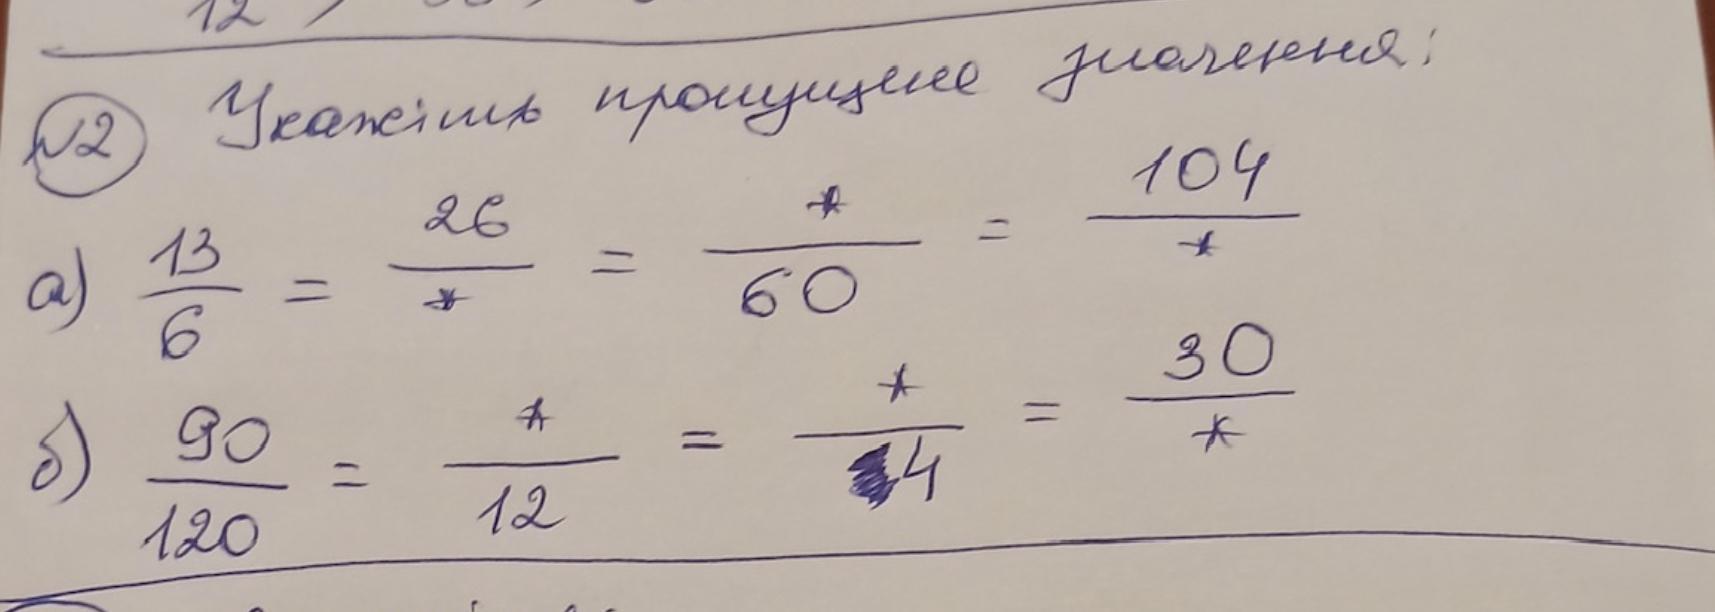 12
№2 Укажіть пропущене значення:
а) 13/6 = 26/* = */60 = 104/*
б) 90/120 = */12 = */4 = 30/*